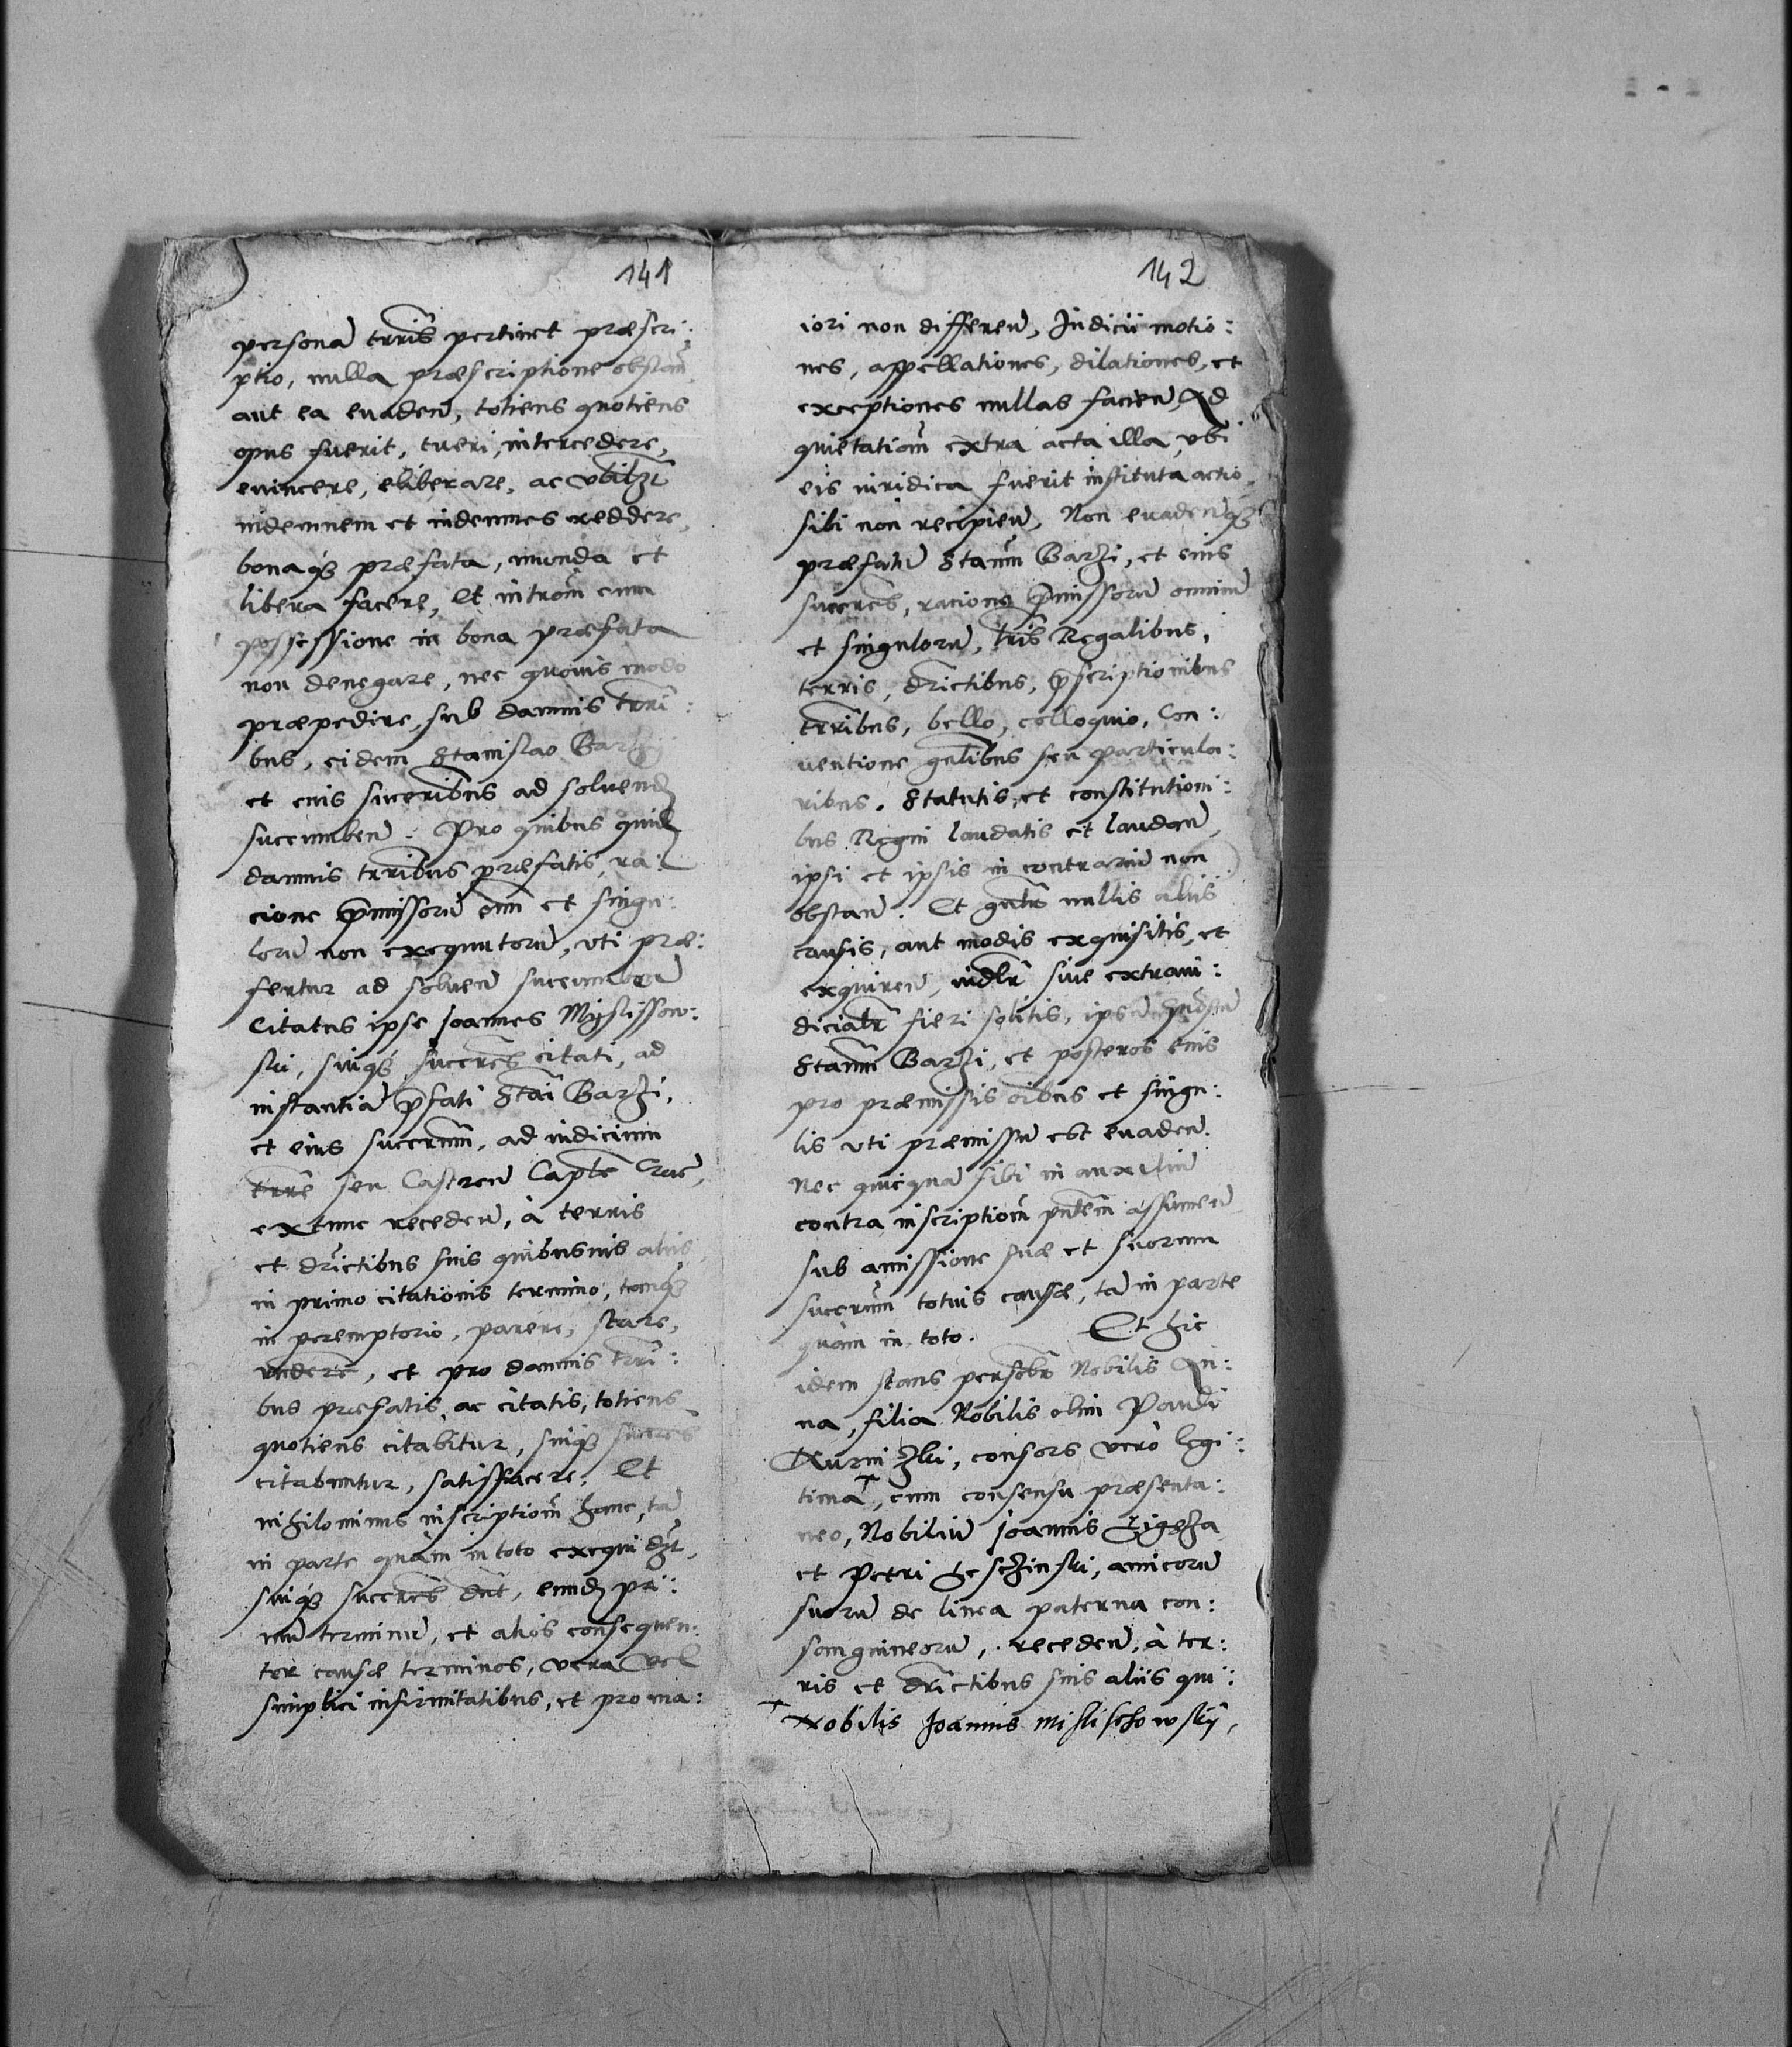 141
personã trrıs̃ pertinet præscri:
ptio, nulla præscriptione obstañ
aut ea euadeñ, totiens quotiens
opus fuerit, tueri, intercedere,
euincere, eliberare, ac
indemnem et indemnes reddere,
bonaq́ꝫ præfata, munda et
libera facere, Et intrōm cum
possessione in bona præfata
non denegare, nec quouis modo
præpedire, sub damnis trrĩ:
bus, eidem Stanislao Barzi
et eius succeribus̃ ad soluend̃
succumbeñ. Pro quibus quid̃
damnis trribus̃ præfatis, ra:
cione p̃missorũ oım̃ et singu:
lorũ non exequutorũ, vti præ:
fertur ad soluen̄ succumbeñ
Citatus ipse Joannes Myslissow:
ski, suiq́ꝫ succeres̃ citati, ad
instantiã p̃fati Stai᷃ Barzi,
et eius succerum̃, ad iudicium
trre᷃ seu Castren̄ Capte᷃ Crac̃,
extunc recedeñ, à terris
et dr̃ictibus suis quibusuis aliis
in primo citationis termino, tanq́ꝫ
in peremptorio, parere, stare,
rndere᷃, et pro damnis trrĩ:
bus præfatis ac citatis, totiens
quotiens citabitur, suiq́ꝫ succres̃
citabuntur, satisfacere. Et
nihilominus inscriptiōm hanc, tã
in parte quàm in toto exequi
suiq́ꝫ succeres̃ dñt, eund̃ pri:
mũ terminũ, et alios consequen:
ter causæ terminos, vera vel
simplici infirmitatibus, et pro ma:
142
iori non differen̄, Iudicii motio:
nes, appellationes, dilationes, et
exceptiones nullas facien̄, Ad
quietatiōm extra acta illa, vbi
eis iuridica fuerit instituta actio
sibi non recipien̄, Non euadenq́ꝫ
præfatũ Stanũm Barzi, et eius
succeres̃, racione p̃missorũ omniũ
et singulorũ, lris̃ Regalibus,
terris, dr̃ictibus, p̃scriptionibus
trribus̃, bello, colloquio, Con:
uentione gñlibus seu particula:
ribus. Statutis, et constitutioni:
bus Regni laudatis et laudan̄,
ipsi et ipsis in contrariũ non
obstan̄. Et gnlr᷃ nullis aliis
causis, aut modis exquisitis, et
exquiren̄, iudlr᷃ siue extraiu:
dicialr᷃ fieri solitis, ipsũ
Stanũm Barzi, et posteros eius
pro præmissis oĩbus et singu:
lis vti præmissũ est euaden̄.
Nec quicquã sibi in auxiliũ
contra inscriptiōm pñtem assumen̄
sub amissione suæ et suorum
succerũm totius causæ, tã in parte
quàm in toto. Et hic
idem stans persolr᷃ Nobilis An:
na, filia Nobilis olim Pauli
Kurni zki, consors verò legi:
tima ᵼ, cum consensu præsenta:
neo, Nobiliũ Joannis Ligęza
et Petri, amicorũ
suorũ de linea paterna con:
sanguineorũ, recedeñ, à ter:
ris et dr̃ictibus suis aliis qui:
ᵼ Nobilis Joannis Mislischowskij,